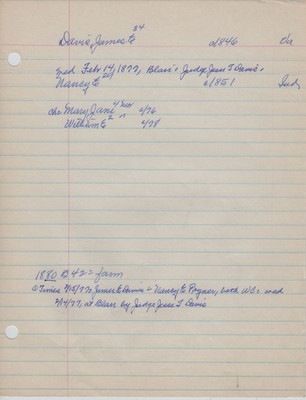 Davis, James E 34 c/1846 Va
med Feb 14/1877, Blair, Judge Jesse T Davis,
Nancy E 20 c/1851 Ind
chr Mary Jane 4/
William E 2
1880 B 42 = farm
Times 2/15/77, James E Davis = Nancy E Poyner, both WC, med
2/14/77, at Blair by Judge Jesse T Davis